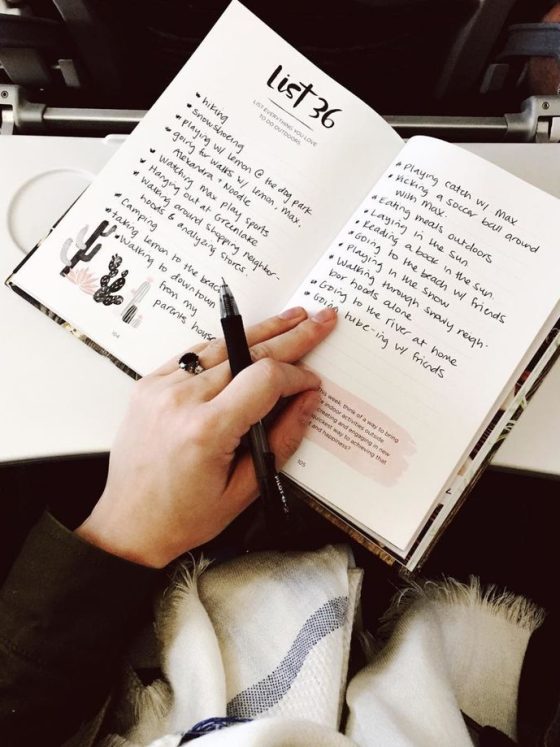 List 36
LIST EVERYTHING YOU LOVE
TO DO OUTDOORS.
hiking
snowshoeing
playing w/ lemon @ the dog park
going for walks w/ Lemon, Max,
Alexandra, Noodle
Watching Max play sports
Hanging out at Greenlake
Walking around shopping neighbor-
hoods & analyzing stores.
Camping
taking lemon to the beach
Walking to downtown
from my
parents house
104
playing catch w/ Max
Kicking a soccer ball around
with Max.
Eating meals outdoors
Laying in the sun
Reading a book in the sun.
Going to the beach w/ friends
Playing in the snow
Walking through snowy neigh-
bor hoods alone
Going to the river at home
Going tube-ing w/ friends
this week, think of a way to bring
indoor activities outside.
creating and engaging in new
quickest way to achieving that
and happiness?
105